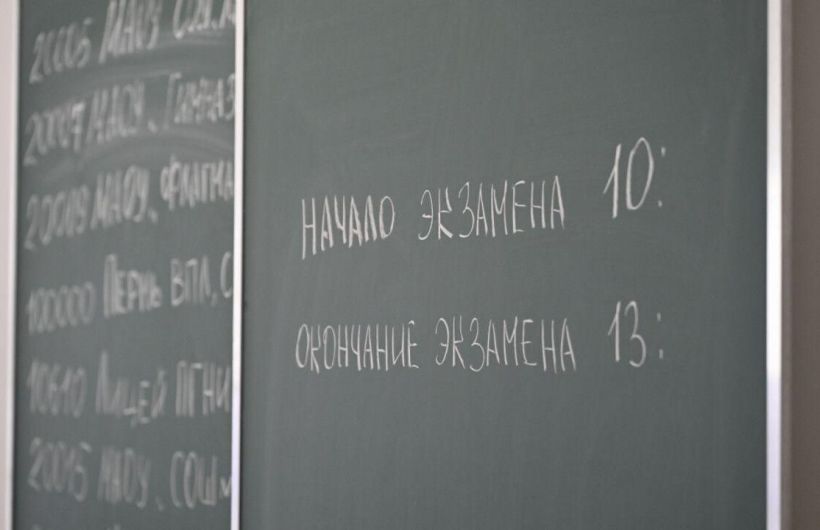 20005 МАОУ
20007 МАОУ. Гимназ
20019 МАОУ. ФЛАГМА
100000 Пермь ВПЛ, С
10610 Лицей ПГНИ
20015 МАОУ. СОШ
НАЧАЛО ЭКЗАМЕНА 10:
ОКОНЧАНИЕ ЭКЗАМЕНА 13: